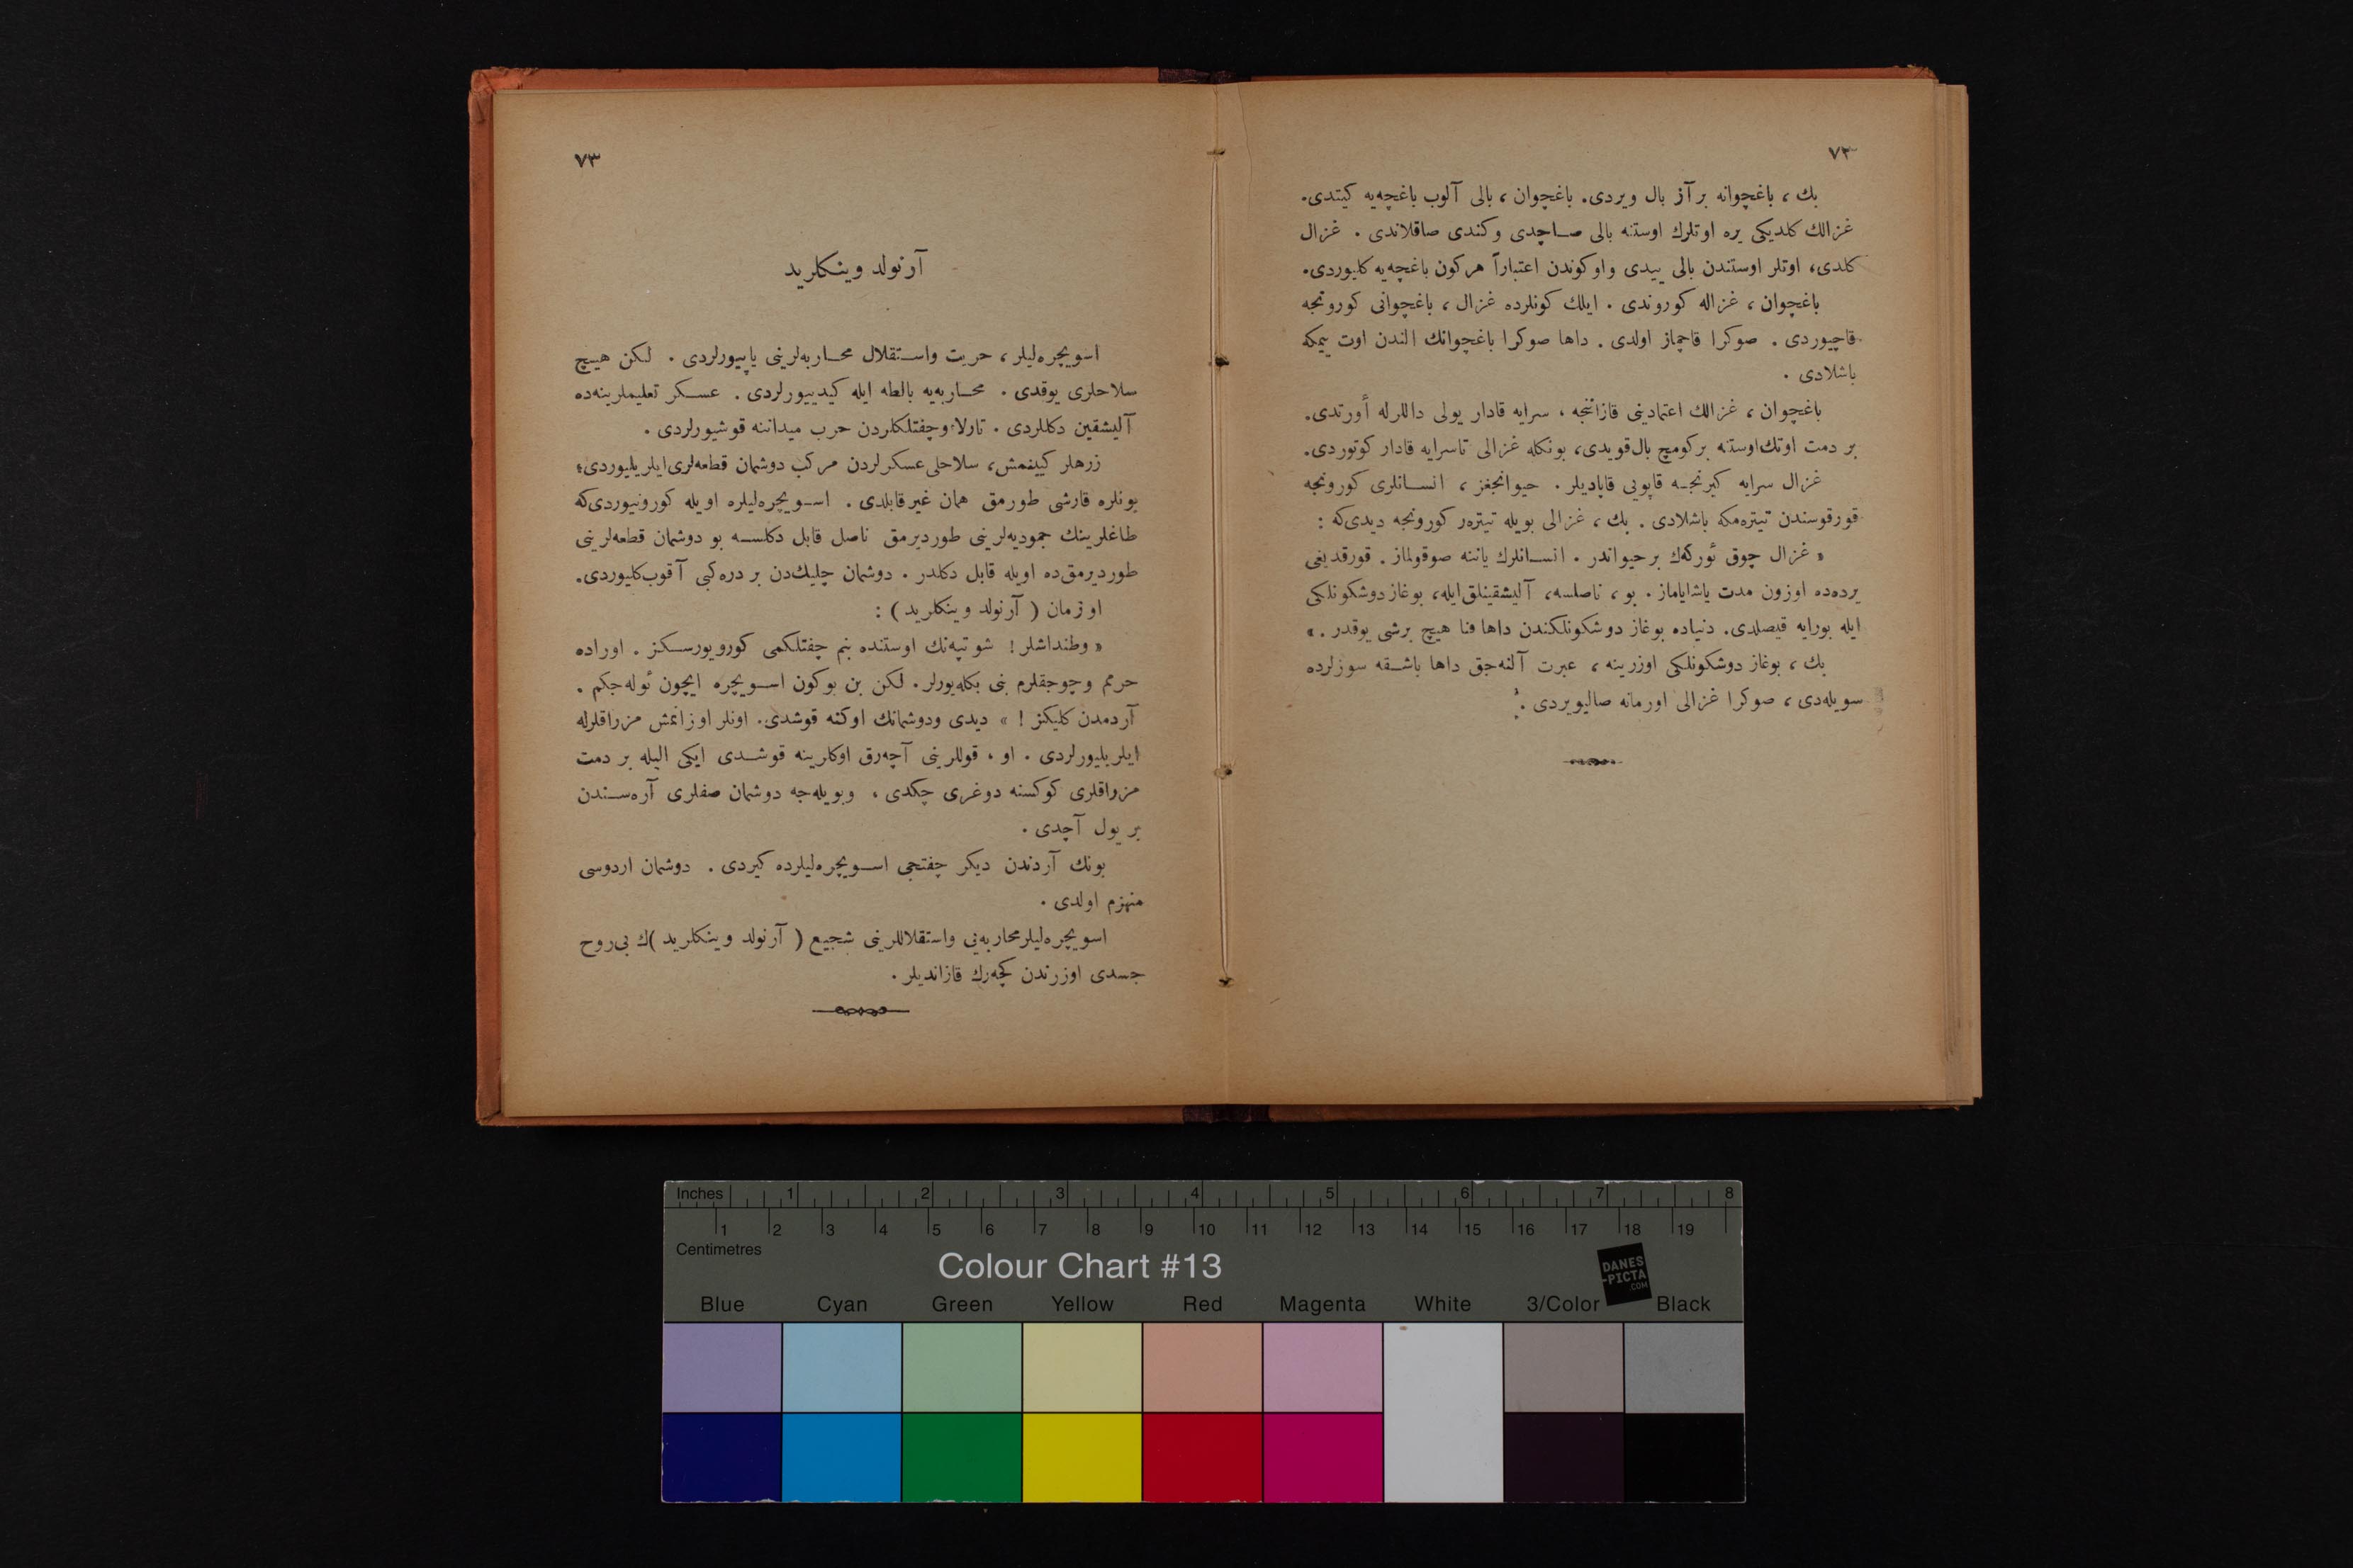 ٧٢
بك ، باغچوانه بر آز بال ويردى. باغچوان ، بالى آلوب باغچه‌يه كيتدى.
غزالك كلديكى يره اوتلرك اوستنه بالى صاچدى و كندى صاقلاندى . غزال
كلدى، اوتلر اوستندن بالى ييدى و او كوندن اعتباراً هركون باغچه‌يه كليوردى.
باغچوان ، غزاله كوروندى . ايلك كونلرده غزال ، باغچوانى كورونجه
قاچيوردى . صوكرا قاچماز اولدى . داها صوكرا باغچوانك الندن اوت ييمكه
باشلادى .
باغچوان ، غزالك اعتمادينى قازاننجه ، سرايه قادار يولى داللرله أورتدى.
بر دمت اوتك اوستنه بر كومچ بال قويدى، بونكله غزالى تا سرايه قادار كوتوردى.
غزال سرايه كيرنجه قاپويى قاپاديلر . حيوانجغز ، انسانلرى كورونجه
قورقوسندن تيتره‌مكه باشلادى . بك ، غزالى بويله تيتره‌ر كورونجه ديدى‌كه :
« غزال چوق ئوركه‌ك بر حيواندر . انسانلرك ياننه صوقولماز . قورقديغى
يرده‌ده اوزون مدت ياشاياماز . بو ، ناصلسه، آليشقينلق ايله، بوغاز دوشكونلكى
ايله بورايه قيصلدى. دنياده بوغاز دوشكونلكندن داها فنا هيچ برشى يوقدر . »
بك ، بوغاز دوشكونلكى اوزرينه ، عبرت آلنه‌جق داها باشقه سوزلرده
سويله‌دى ، صوكرا غزالى اورمانه صاليويردى .
٧٣
آرنولد وينكلريد
اسويچره‌ليلر ، حريت واستقلال محاربه‌لرينى ياپييورلردى . لكن هيچ
سلاحلرى يوقدى . محاربه‌يه بالطه ايله كيدييورلردى . عسكر تعليملرينه‌ده
آليشقين دكللردى . تارلا وچفتلكلردن حرب ميداننه قوشيورلردى .
زرهلر كيينمش، سلاحلى عسكرلردن مركب دوشمان قطعه‌لرى ايلريليوردى؛
بونلره قارشى طورمق همان غير قابلدى . اسويچره‌ليلره اويله كورونيوردى‌كه
طاغلرينك جموديه‌لرينى طورديرمق ناصل قابل دكلسه بو دوشمان قطعه‌لرينى
طورديرمق‌ده اويله قابل دكلدر . دوشمان چليك‌دن بر دره كبى آقوب كليوردى.
او زمان ( آرنولد وينكلريد ) :
« وطنداشلر ! شو تپه‌نك اوستنده بنم چفتلكمى كورويورسكز . اوراده
حرمم وچوجقلرم بنى بكله‌يورلر. لكن بن بوكون اسويچره ايچون ئوله‌جكم .
آردمدن كليكز ! » ديدى ودوشمانك اوكنه قوشدى. اونلر اوزانمش مزراقلرله
ايلريليورلردى . او ، قوللرينى آچه‌رق اوكلرينه قوشدى ايكى اليله بر دمت
مزراقلرى كوكسنه دوغرى چكدى ، وبويله‌جه دوشمان صفلرى آره‌سندن
بر يول آچدى .
بونك آردندن ديكر چفتجى اسويچره‌ليلرده كيردى . دوشمان اردوسى
منهزم اولدى .
اسويچره‌ليلر محاربه‌يى واستقلاللرينى شجيع ( آرنولد وينكلريد )ك بى‌روح
جسدى اوزرندن كچه‌رك قازانديلر .
Inches 1 2 3 4 5 6 7 8
1 2 3 4 5 6 7 8 9 10 11 12 13 14 15 16 17 18 19
Centimetres
Colour Chart #13
DANES
-PICTA
.COM
Blue Cyan Green Yellow Red Magenta White 3/Color Black